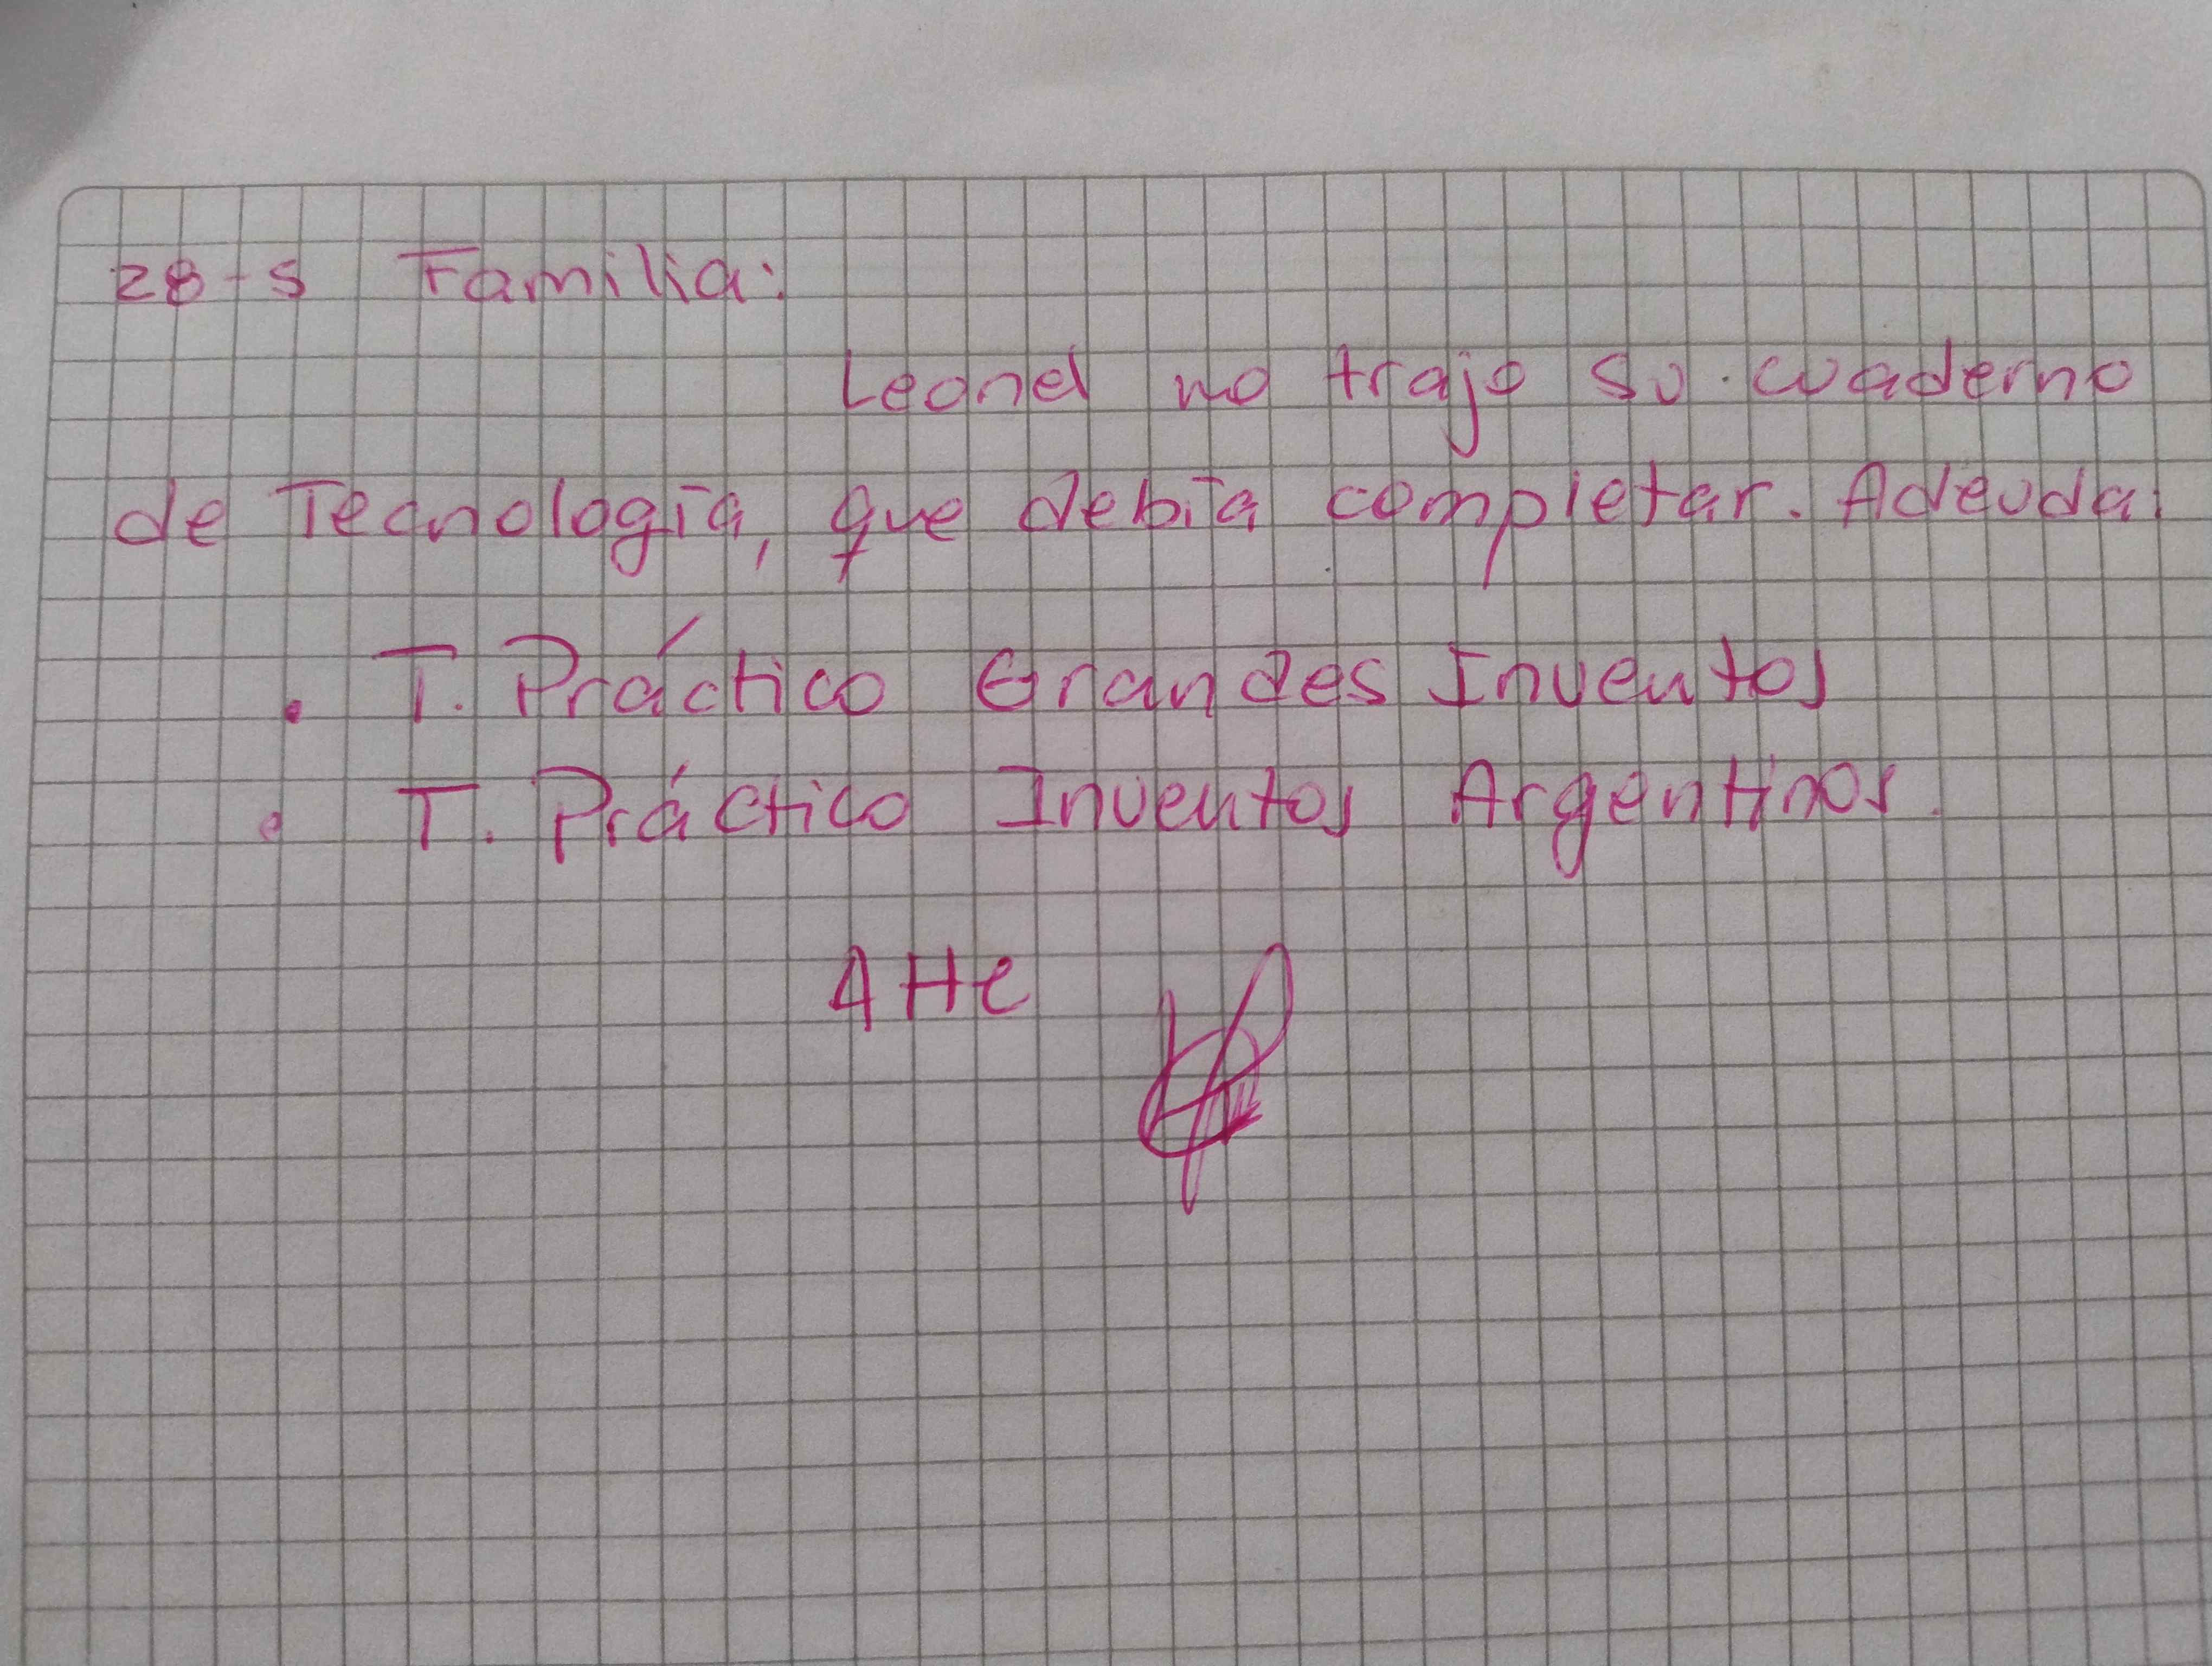 28-5 Familia:
Leonel no trajo su cuaderno
de Tecnología, que debía completar. Adeuda:
. T. Práctico Grandes Inventos
. T. Práctico Inventos Argentinos.
Atte